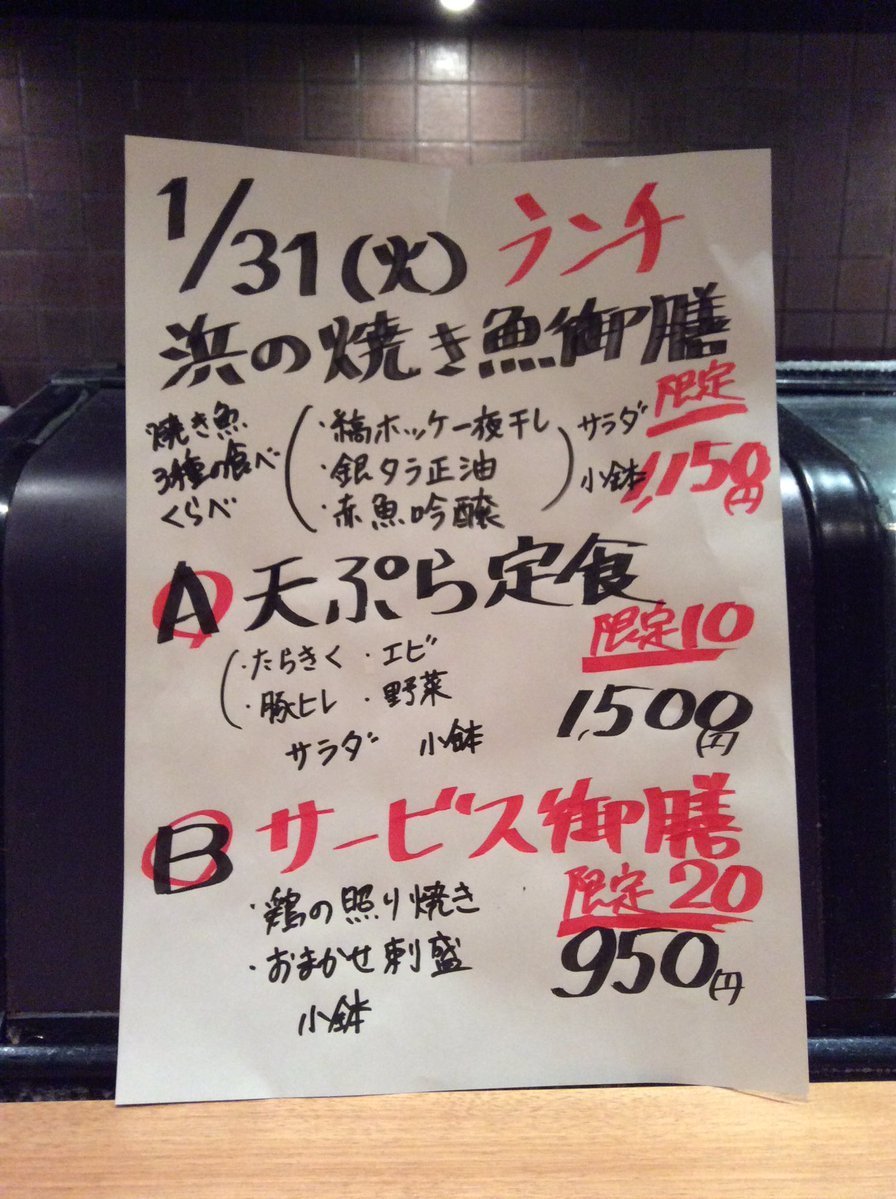 1/31(火) ランチ
浜の焼き魚御膳
限定
焼き魚
3種の食べ
くらべ
(・縞ホッケ一夜干し
・銀タラ正油
・赤魚吟醸)
サラダ
小鉢
1,150円
A 天ぷら定食
限定10
(・たらきく ・エビ
・豚ヒレ ・野菜
サラダ 小鉢
1,500円
B サービス御膳
限定20
・鶏の照り焼き
・おまかせ刺盛
小鉢
950円